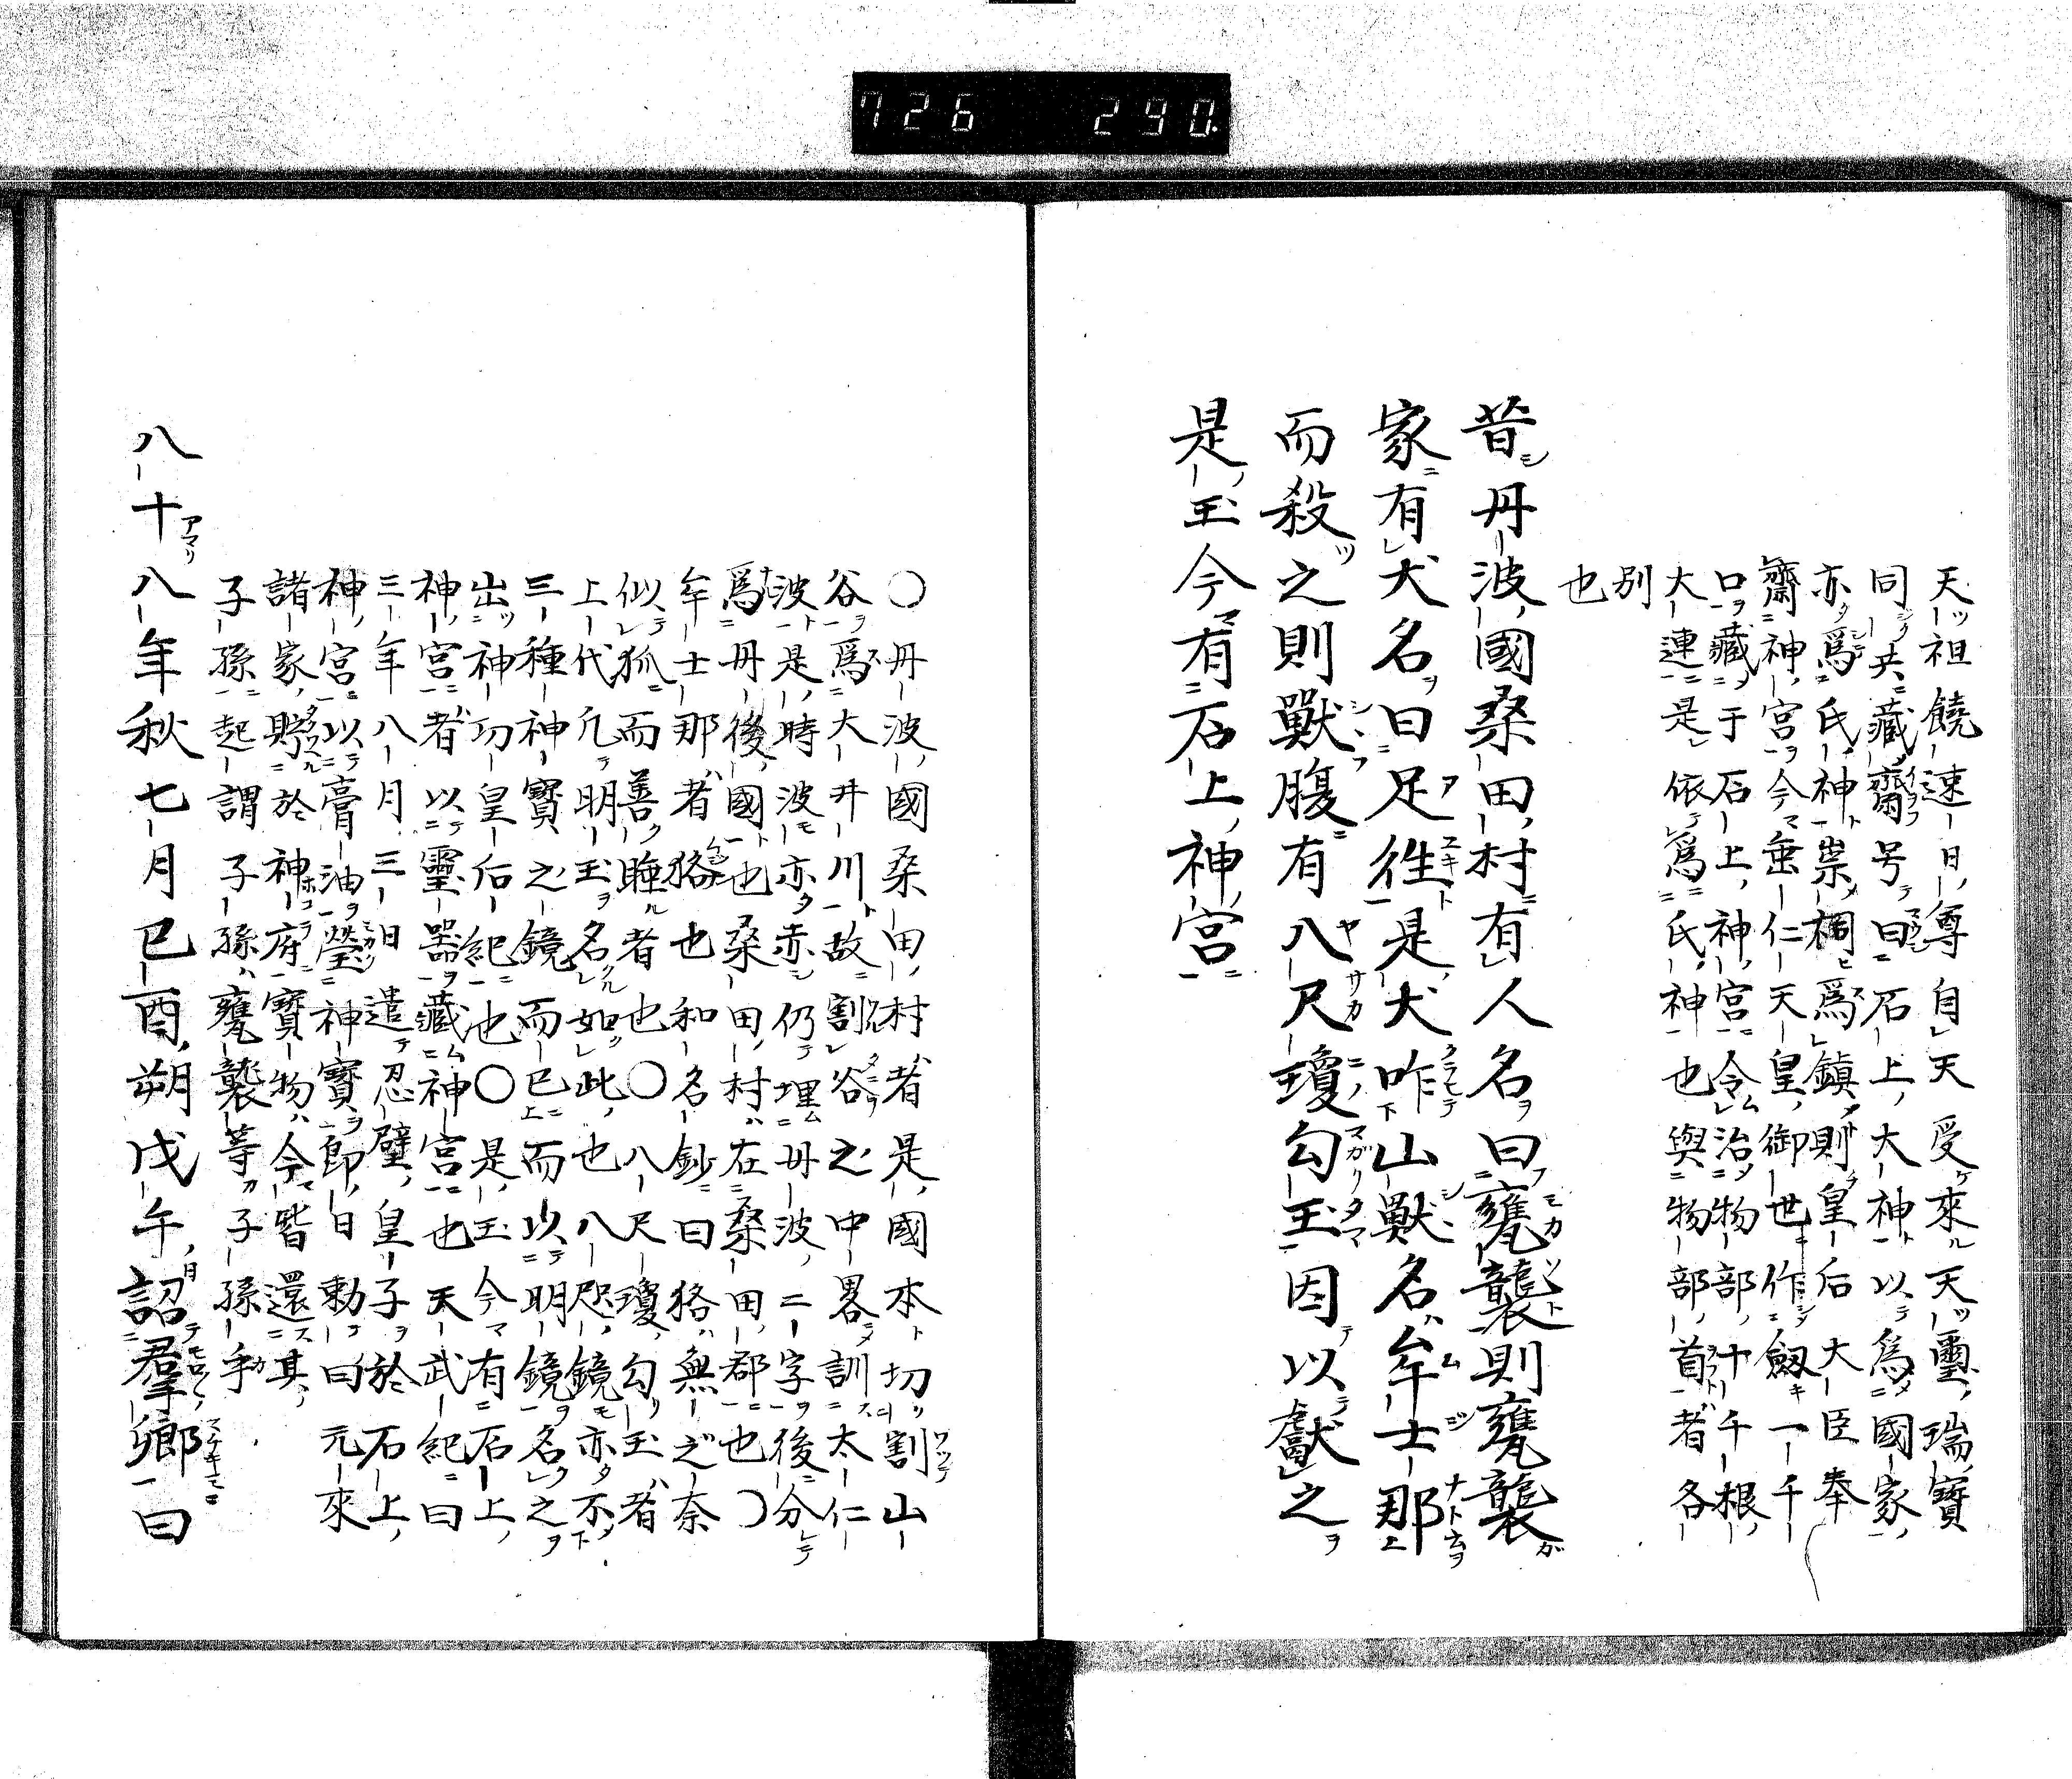 726 290.
天祖饒速日尊自天受來天璽瑞寶
同共藏齋号曰石上大神以爲國家
亦爲氏神崇祠爲鎮則皇后大臣奉
齋神宮今垂仁天皇御世作劔一千
口藏于石上神宮令治物部十千根
大連是依爲氏神也與物部首者各
別也
昔丹波國桑田村有人名曰甕襲則甕襲
家有犬名曰足徃是犬咋山獸名牟士那
而殺之則獸腹有八尺瓊勾玉因以獻之
是玉今有石上神宮
〇丹波國桑田村者是國本切割山
谷爲大井川故割谷之中畧訓太仁
波是時波亦赤仍埋丹波二字後分
爲丹後國也桑田村在桑田郡也〇
牟士那者狢也和名鈔曰狢無之奈
似狐而善睡者也〇八尺瓊勾玉者
上代凢明玉名如此也八咫鏡亦不
三種神寶之鏡而已而以明鏡名之
出神功皇后紀也〇是玉今有石上
神宮者以靈器藏神宮也天武紀曰
三年八月三日遣忍壁皇子於石上
神宮以膏油瑩神寶即日勅曰元來
諸家貯於神府寶物今皆還其
子孫起謂子孫甕襲等子孫手
八十八年秋七月已酉朔戊午日詔羣卿曰